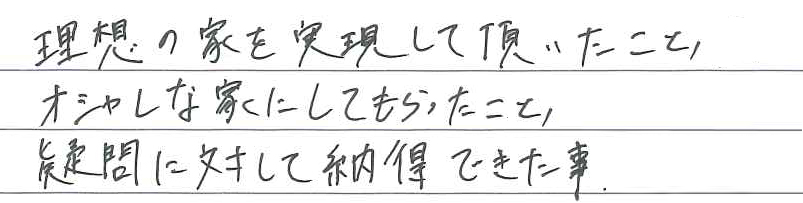 理想の家を実現して頂いたこと,
オシャレな家にしてもらったこと,
疑問に対して納得できた事.